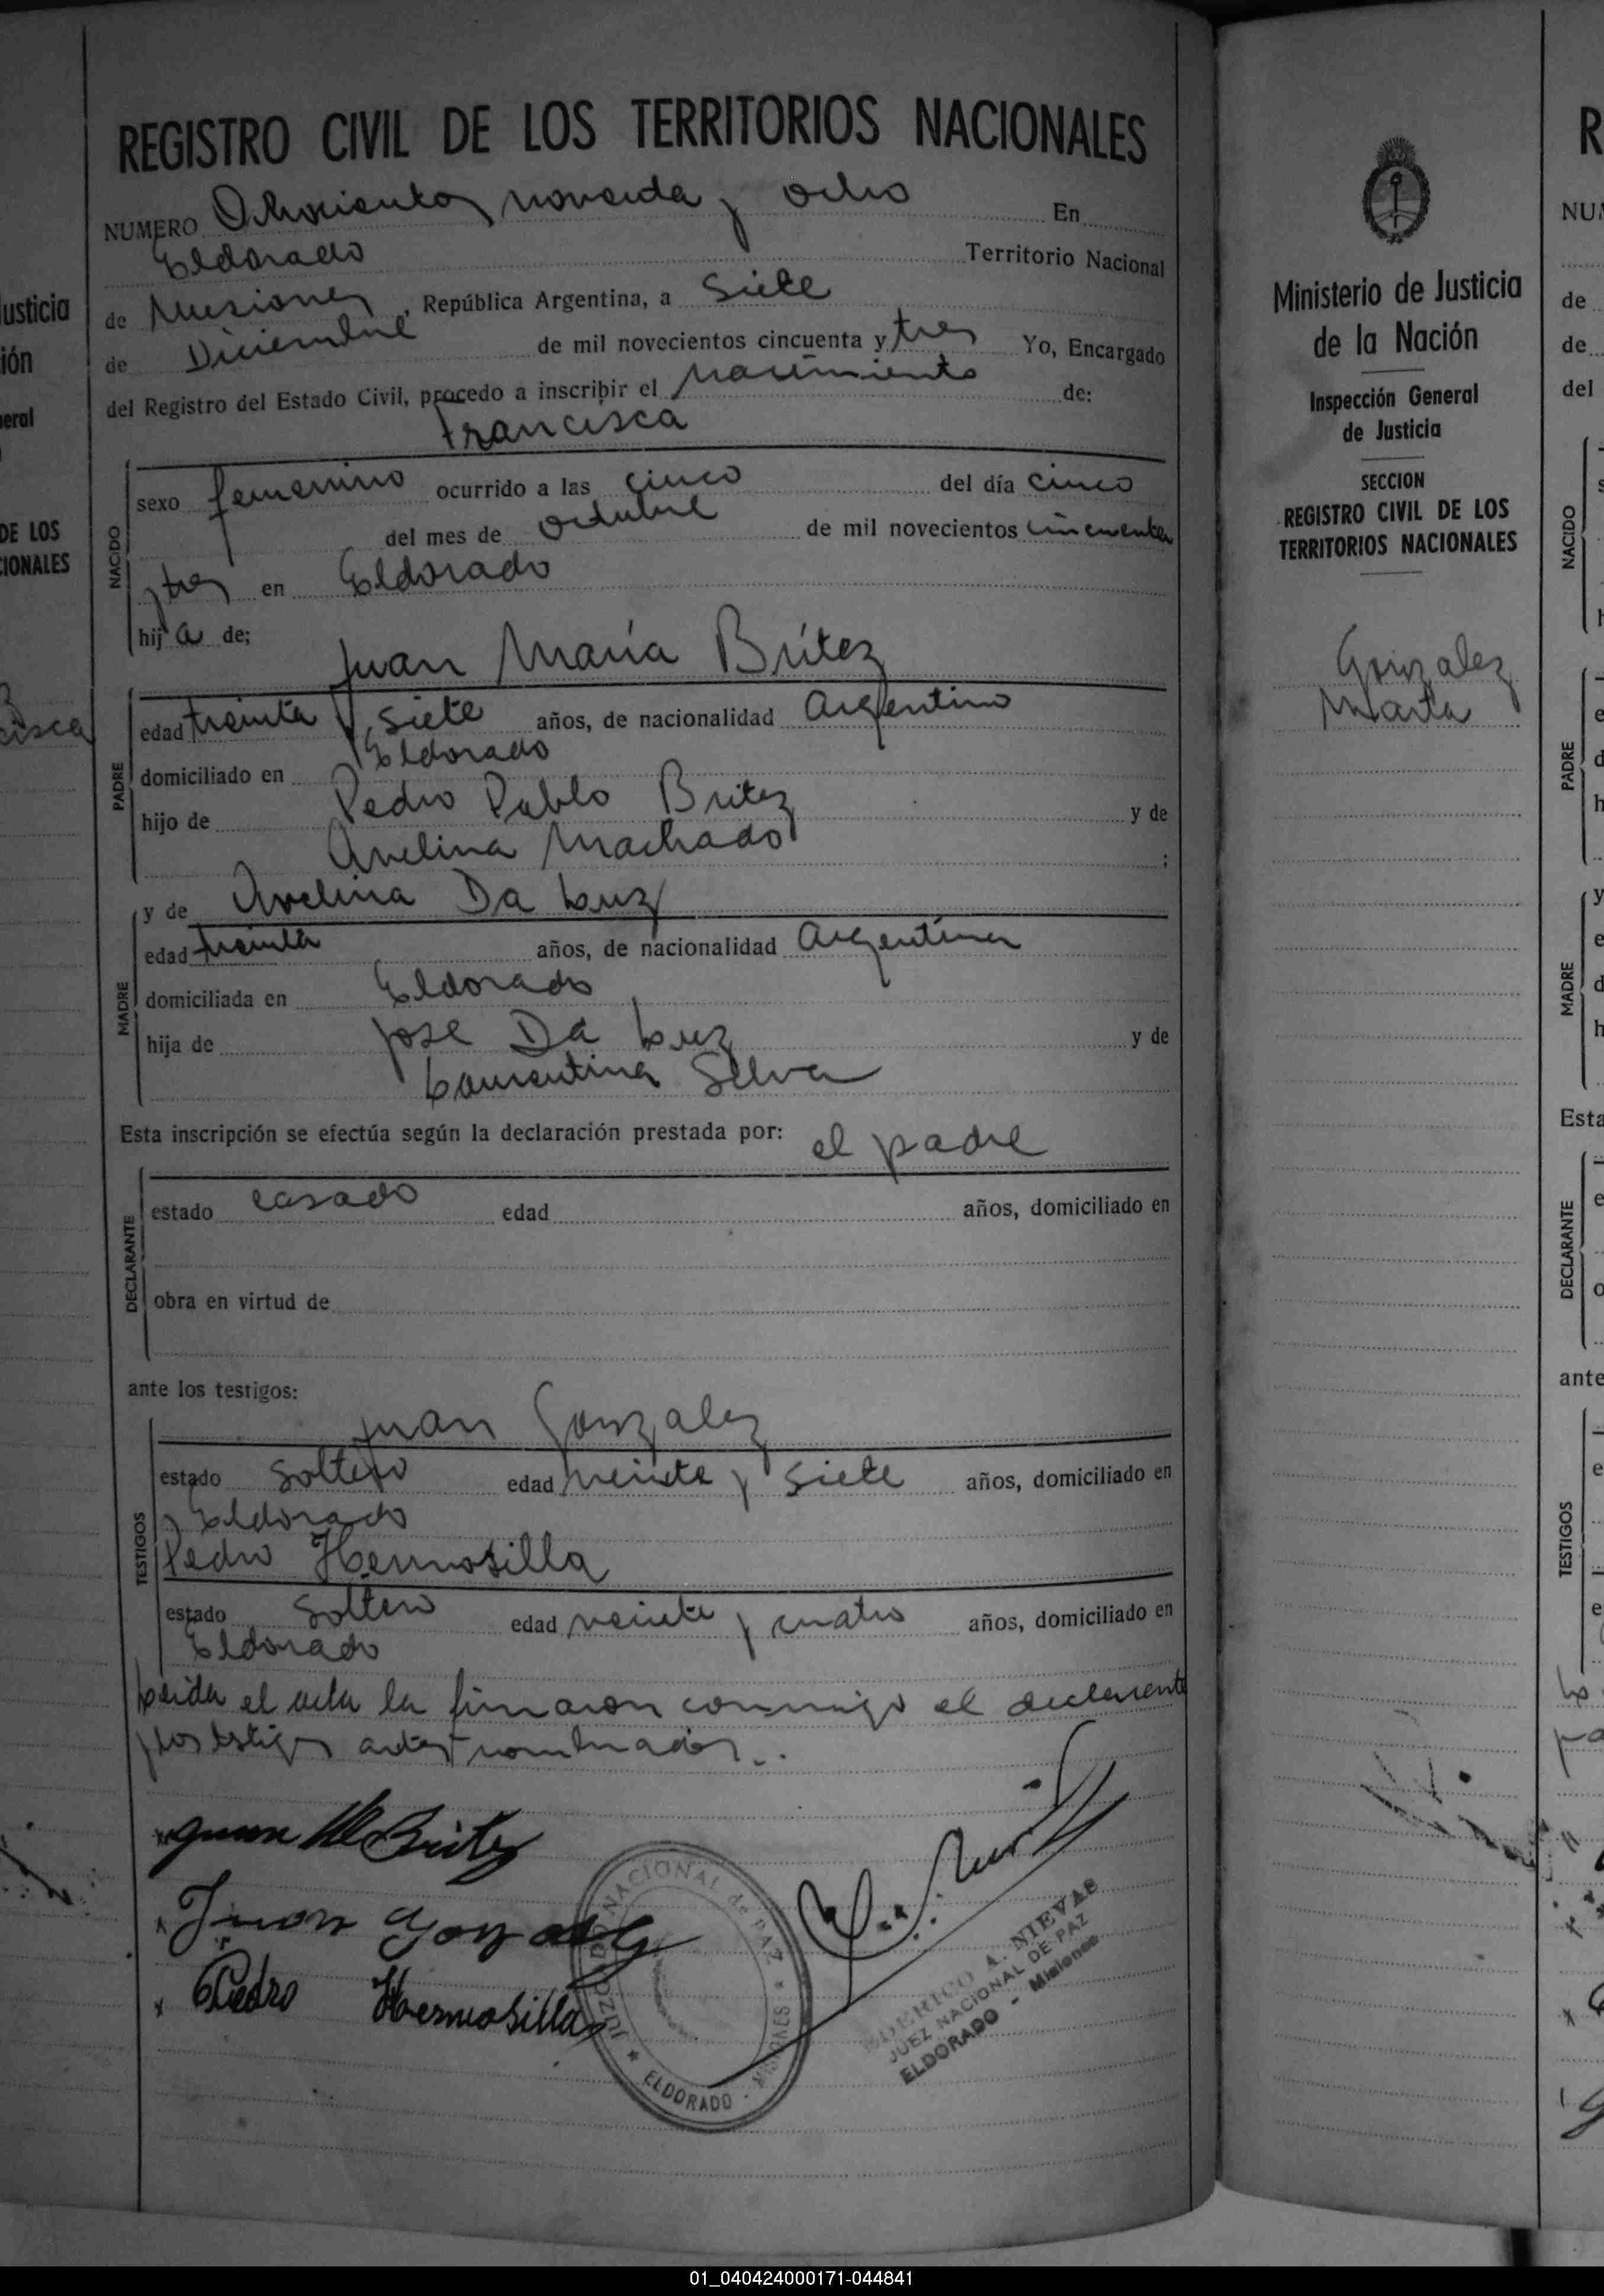 REGISTRO CIVIL DE LOS TERRITORIOS NACIONALES
NUMERO Ochocientos noventa y ocho En
Eldorado Territorio Nacional
de Misiones, República Argentina, a siete
de Diciembre de mil novecientos cincuenta y tres Yo, Encargado
del Registro del Estado Civil, procedo a inscribir el nacimiento de:
Francisca
NACIDO
sexo femenino ocurrido a las cinco del día cinco
del mes de octubre de mil novecientos cincuenta
y tres en Eldorado
hija de;
Juan María Brítez
PADRE
edad treinta y siete años, de nacionalidad Argentino
domiciliado en Eldorado
hijo de Pedro Pablo Britez y de
Avelina Machado ;
MADRE
y de Avelina Da Luz
edad treinta años, de nacionalidad Argentina
domiciliada en Eldorado
hija de Jose Da Luz y de
Laurentina Silva
Esta inscripción se efectúa según la declaración prestada por: el padre
DECLARANTE
estado casado edad años, domiciliado en
obra en virtud de
ante los testigos:
Juan Gonzalez
TESTIGOS
estado soltero edad veinte y siete años, domiciliado en
Eldorado
Pedro Hermosilla
estado soltero edad veinte y cuatro años, domiciliado en
Eldorado
Leida el acta la firmaron conmigo el declarante
y los testigos antes nombrados.
Juan M Britez
Juan Gonzalez
Pedro Hermosilla
JUZGADO NACIONAL de PAZ
ELDORADO - MISIONES
A. NIEVAS
JUEZ NACIONAL DE PAZ
ELDORADO - Misiones
Ministerio de Justicia
de la Nación
Inspección General
de Justicia
SECCION
REGISTRO CIVIL DE LOS
TERRITORIOS NACIONALES
Gonzalez
Marta
NACIDO
PADRE
MADRE
Esta
DECLARANTE
ante
TESTIGOS
01_040424000171-044841